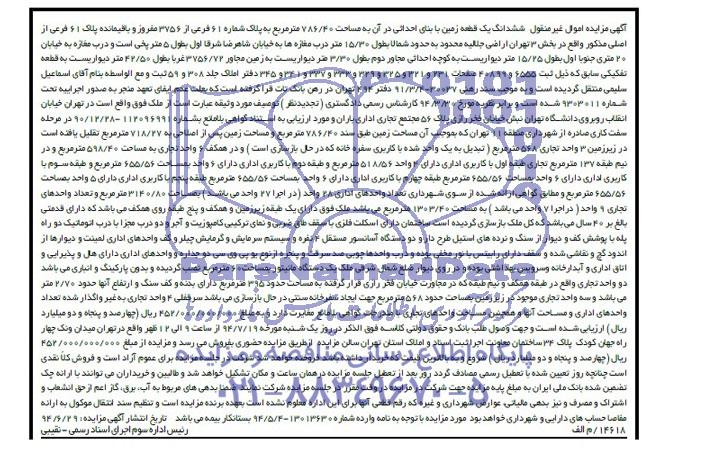 آگهی مزایده اموال غیر منقول ششدانگ یک قطعه زمین با بنای احداثی در آن به مساحت ۷۸۶/۴۰ مترمربع به پلاک شماره ۶۱ فرعی از ۳۷۵۶ مفروز و باقیمانده پلاک ۶۱ فرعی از
اصلی مذکور واقع در بخش ۳ تهران اراضی جلالیه محدود به حدود شمالا بطول ۱۵/۳۰ متر درب مغازه ها به خیابان شاهرضا شرقا اول بطول ۵ متر پخی است و درب مغازه به خیابان
۲۰ متری جنوبا اول بطول ۱۵/۲۵ متر دیواریست به کوچه احداثی مجاور دوم بطول ۳/۳۰ متر دیواریست به زمین مجاور ۳۷۵۶/۷۲ غربا بطول ۴۲/۵۰ متر دیواریست به قطعه
تفکیکی سابق که ذیل ثبت ۶۵۵۵ و ۴۰۸۹۹ صفحات ۲۳۱ و ۳۲۱ و ۳۲۵ و ۳۲۹ و ۳۳۳ و ۳۳۷ و ۳۴۱ و ۳۴۵ دفتر املاک جلد ۳۰۸ و ۵۹ ثبت و مع الواسطه بنام آقای اسماعیل
سلیمی منتقل گردیده است و به موجب سند رهنی ۲۰۰۳۷-۹۱/۳/۴ دفتر ۴۹۴ تهران در رهن بانک تات قرار گرفته است که بعلت عدم ایفای تعهد منجر به صدور اجراییه تحت
شماره ۹۳۰۳۰۱۱ شده است و برابر نظریه مورخ ۹۴/۳/۲۰ کارشناس رسمی دادگستری (تجدیدنظر) توصیف مورد وثیقه عبارت است از ملک فوق واقع است در تهران خیابان
انقلاب روبروی دانشگاه تهران نبش خیابان فخر رازی پلاک ۵۶ مجتمع تجاری اداری باران و مورد ارزیابی به استناد گواهی بلامانع بشماره ۱۱۲۰۹۶۹۹۱-۹۰/۱۲/۲۸ در مرحله
سفت کاری صادره از شهرداری منطقه ۱۱ تهران که بموجب آن مساحت زمین طبق سند ۷۸۶/۴۰ مترمربع و مساحت زمین پس از اصلاحی به ۷۱۸/۲۷ مترمربع تقلیل یافته است
در زیرزمین ۳ واحد تجاری ۵۶۸ مترمربع (تبدیل به یک واحد شده با کاربری سفره خانه که در حال بازسازی است) و در همکف ۶ واحد تجاری به مساحت ۵۹۸/۴۰ مترمربع و در
نیم طبقه ۱۳۷ مترمربع تجاری طبقه اول با کاربری اداری دارای ۴ واحد ۵۱۸/۵۶ مترمربع و طبقه دوم با کاربری اداری دارای ۶ واحد بمساحت ۶۵۵/۵۶ مترمربع و طبقه سوم با
کاربری اداری دارای ۶ واحد بمساحت ۶۵۵/۵۶ مترمربع طبقه چهارم با کاربری اداری دارای ۶ واحد بمساحت ۶۵۵/۵۶ مترمربع طبقه پنجم با کاربری اداری دارای ۵ واحد بمساحت
۶۵۵/۵۶ مترمربع و مطابق گواهی ارائه شده از سوی شهرداری تعداد واحدهای اداری ۲۸ واحد (در اجرا ۲۷ واحد می باشد) بمساحت ۳۱۴۰/۸۰ مترمربع و تعداد واحدهای
تجاری ۹ واحد (در اجرا ۷ واحد می باشد) به مساحت ۱۳۰۳/۴۰ مترمربع می باشد ملک فوق دارای یک طبقه زیرزمین و همکف و پنج طبقه روی همکف می باشد که دارای قدمتی
بالغ بر ۴۰ سال می باشد که کل ملک بازسازی گردیده است ساختمان دارای اسکلت فلزی با سقف طاق ضربی و نمای ترکیبی کامپوزیت و آجر و دو درب مجزا با درب اتوماتیک دو راه
پله با پوشش کف و دیوار از سنگ و نرده های استیل طرح دار و دو دستگاه آسانسور مستقل ۴ نفره و سیستم سرمایش و گرمایش چیلر و کف واحدهای اداری لمینت و دیوارها از
اندود گچ و نقاشی شده و سقف دارای رابیتس با نور مخفی بوده و درب واحدها چوبی ضد سرقت و پنجره از نوع یو پی وی سی دو جداره و واحدهای اداری دارای هال و پذیرایی و
اتاق اداری و آبدارخانه وسرویس بهداشتی بوده و در روی دیوار ضلع شمال شرقی ملک یک دستگاه مانیتور بمساحت ۶۰ مترمربع نصب گردیده و بدون پارکینگ و انباری می باشد
دو واحد تجاری واقع در طبقه همکف و نیم طبقه که در مجاورت خیابان فخر رازی قرار گرفته به مساحت حدود ۳۹۵ مترمربع دارای بدنه و کف سنگ و ارتفاع آنها حدود ۲/۷۰ متر
می باشد و سه واحد تجاری موجود در زیرزمین بمساحت حدود ۵۶۸ مترمربع جهت ایجاد سفرخانه سنتی در حال بازسازی می باشد سرقفلی ۴ واحد تجاری به غیر واگذار شده تعداد
واحدهای اداری و مساحت آنها و همچنین مساحت واحدهای تجاری با مندرجات گواهی بلامانع مغایرت دارد و به مبلغ ۴۵۲/۰۰۰/۰۰۰/۰۰۰ ریال (چهارصد و پنجاه و دو میلیارد
ریال) ارزیابی شده است و جهت وصول طلب بانک و حقوق دولتی کلاسه فوق الذکر در روز یک شنبه مورخه ۹۴/۷/۱۹ از ساعت ۹ الی ۱۲ ظهر واقع در تهران میدان ونک چهار
راه جهان کودک پلاک ۳۴ ساختمان معاونت اجرایی ثبت اسناد و املاک استان تهران سالن مزایده از طریق مزایده حضوری بفروش می رسد و مزایده از مبلغ ۴۵۲/۰۰۰/۰۰۰/۰۰۰
ریال (چهارصد و پنجاه و دو میلیارد ریال) شروع و به بالاترین قیمت که خریدار داشته باشد فروخته خواهد شد شرکت در جلسه مزایده برای عموم آزاد است و فروش کلا نقدی
است چنانچه روز تعیین شده با تعطیل رسمی مصادف گردد روز بعد از تعطیل جلسه مزایده در همان ساعت و مکان تشکیل خواهد شد و طالبین و خریداران می توانند با ارائه چک
تضمین شده بانک ملی ایران به مبلغ پایه مزایده جهت شرکت در مزایده در وقت مقرر در جلسه مزایده شرکت نمایند ضمنا بدهی های مربوط به آب، برق، گاز اعم از حق انشعاب و
اشتراک و مصرف و نیز بدهی مالیاتی، عوارض شهرداری و غیره که رقم قطعی آنها برای این اداره معلوم نشده است بعهده برنده مزایده است و تنظیم سند انتقال موکول به ارائه
مفاصا حساب های دارایی و شهرداری خواهد بود مورد مزایده با توجه به نامه وارده شماره ۱۳۰۱۳۶۳۰-۹۴/۵/۴ بستانکار بیمه می باشد تاریخ انتشار آگهی مزایده: ۹۴/۶/۲۹
۱۴۶۱۸ / م الف
رئیس اداره سوم اجرای اسناد رسمی - نقیبی
ParsNamadData
پایگاه اطلاع رسانی مناقصه و مزایده
۰۲۱-۸۸۳۴۹۶۷۰-۵